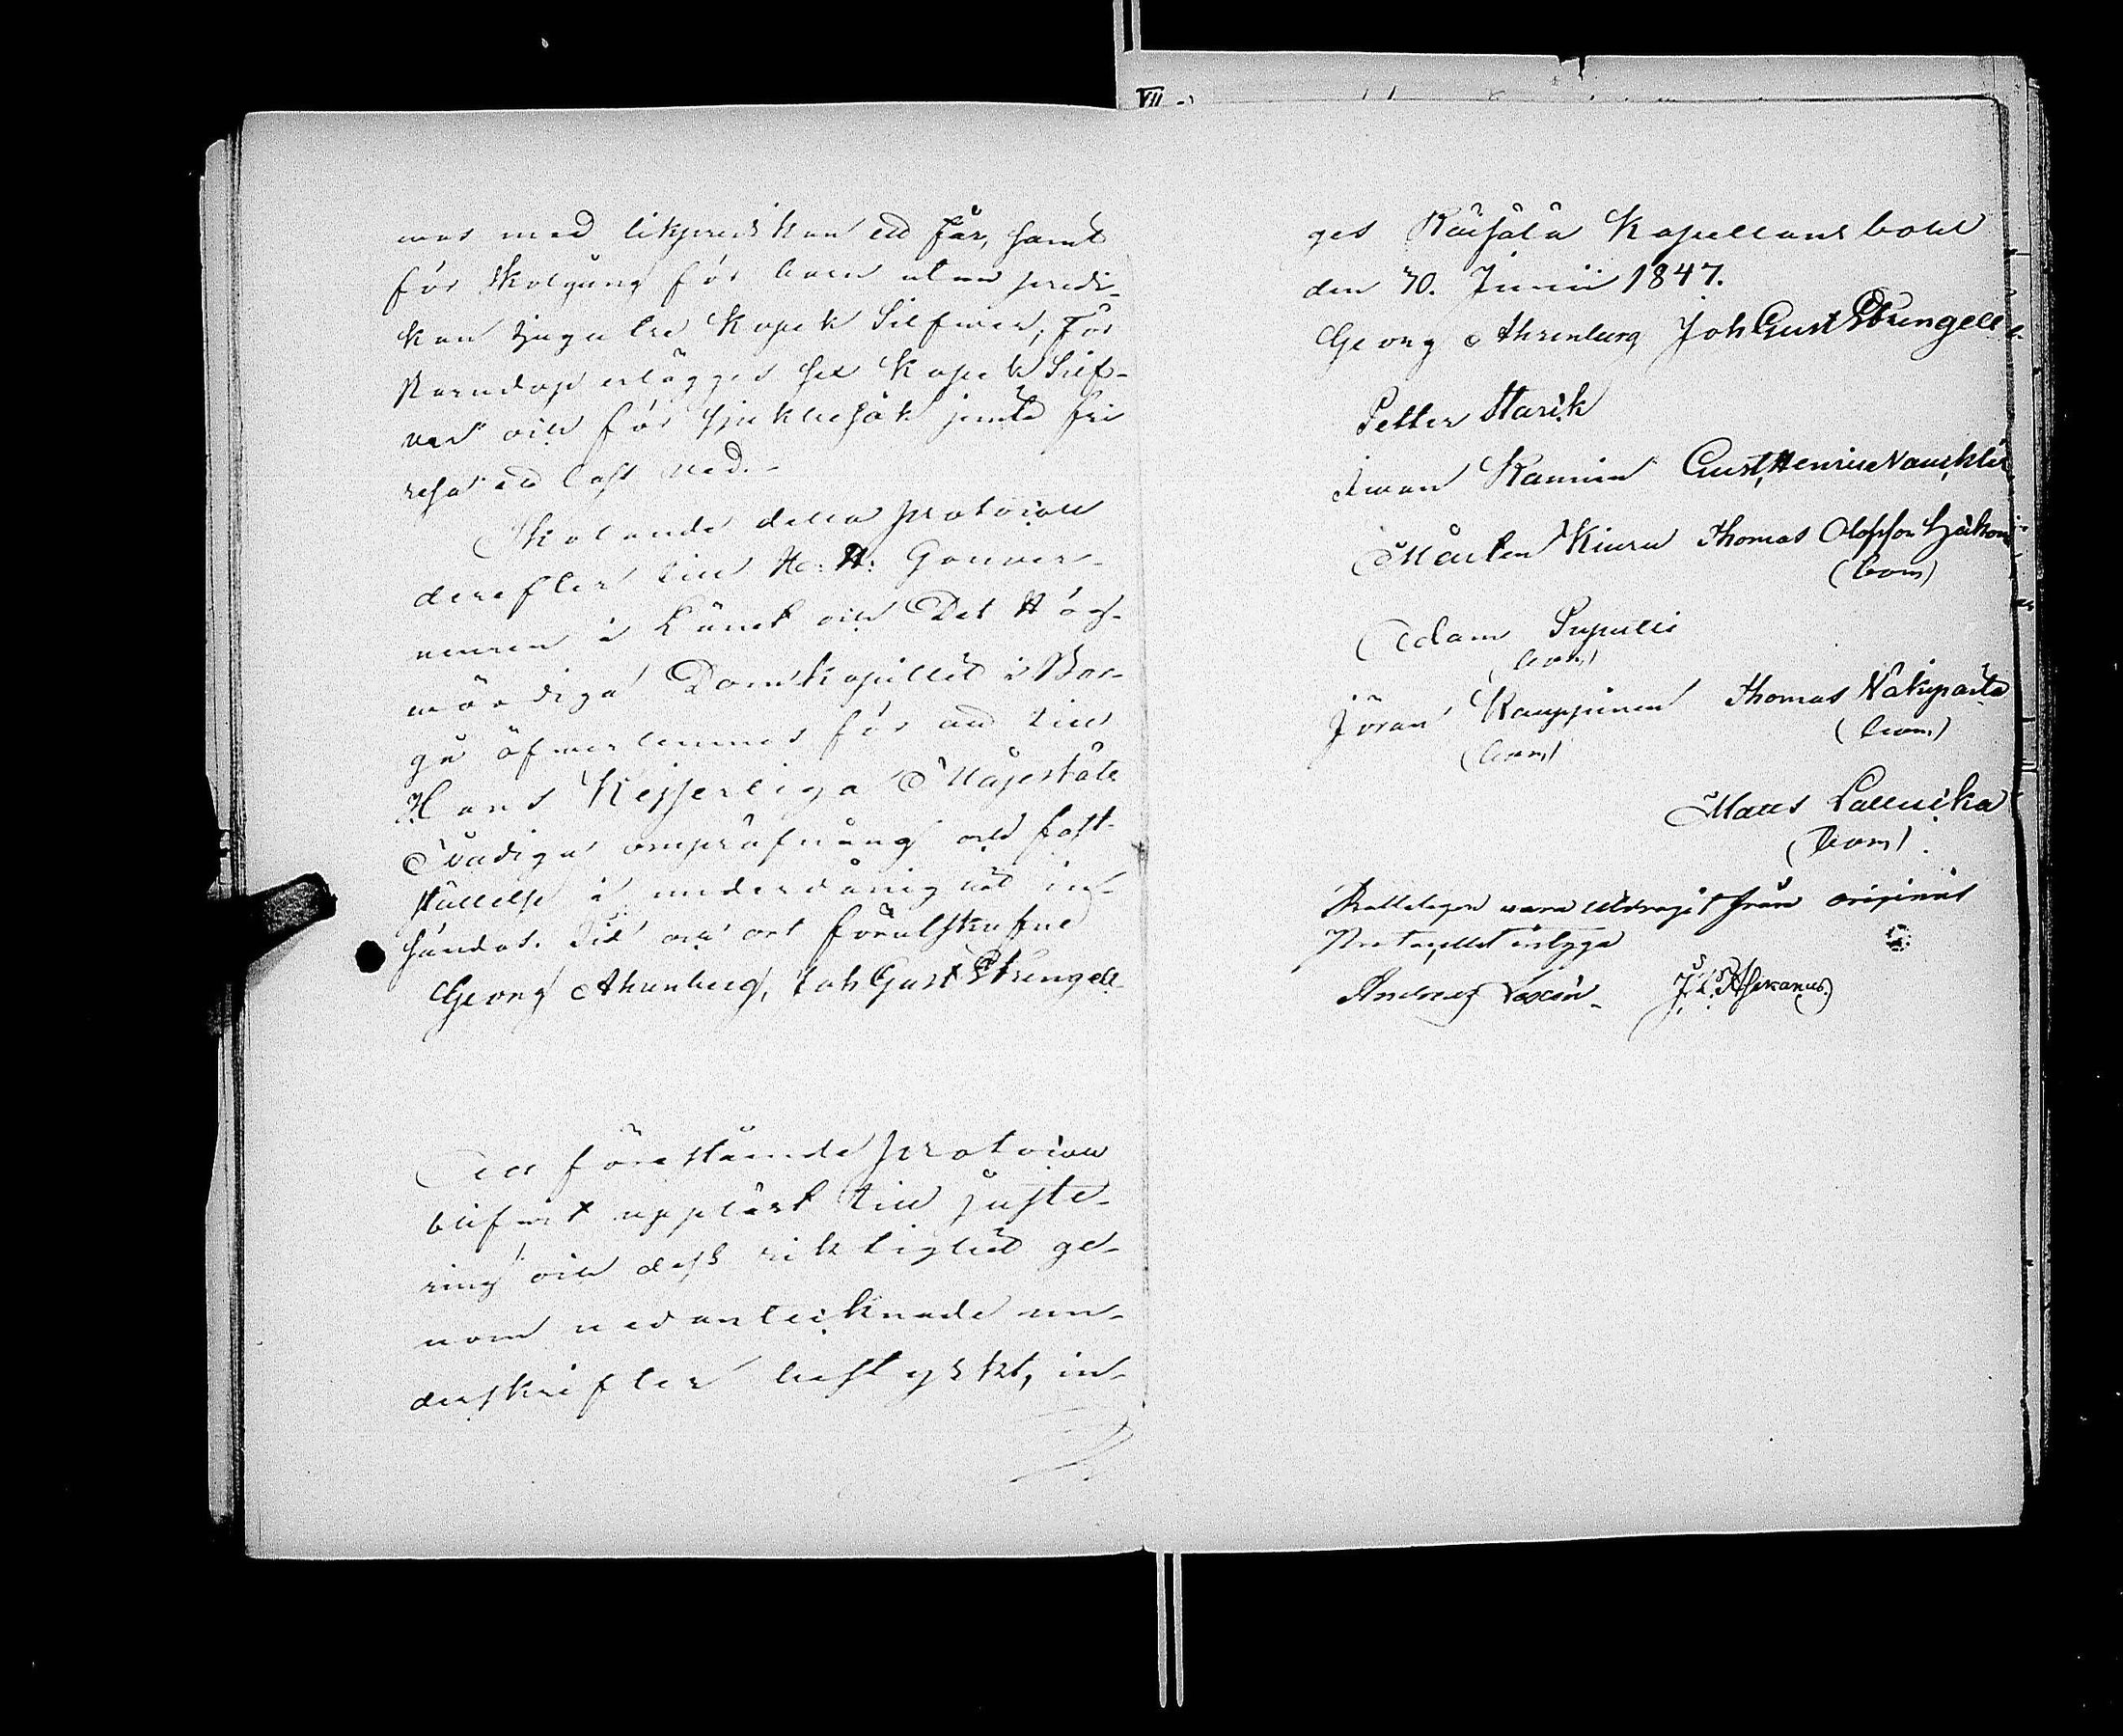 VII
nas med likpredikan ett Får, samt
för Skolgång för barn utan predi-
kan tjugu tre Kopek Silfver, För
Barndop erlägges sex Kopek Silf-
ver och för sjukbesök jemte fri
resa ett lass ved.
Skolande detta protocoll
derefter till H. H. Gouver-
neuren i Länet och Det Hög-
värdiga Domkapitlet i Bor-
gå öfverlemnas för att till
Hans Kejserliga Majestäts
Nådiga ompröfning och fast-
ställelse i underdånighet in-
sändas. Tid och ort förutskrefne
Georg Ahrenberg, Joh Gust Strengell
Att förestående protocoll
blifvit uppläst till juste-
ring och dess riktighet ge-
nom nedantecknade un-
derskrifter bestyrkt, in-
ges Räisälä Kapellans bohl
den 30. Junii 1847.
Georg Ahrenberg Joh Gust Strengell
Petter Starck
Iwan Kannin Gust. Henric
Mårten Kiuru Thomas Olofson
(bom)
Adam Pupulli
(bom)
Jöran Kauppinen Thomas Näkiparta
(bom) (bom)
Matts Lallukka
(bom)
vara utdragit från original
Protocollet intyga
Andreas